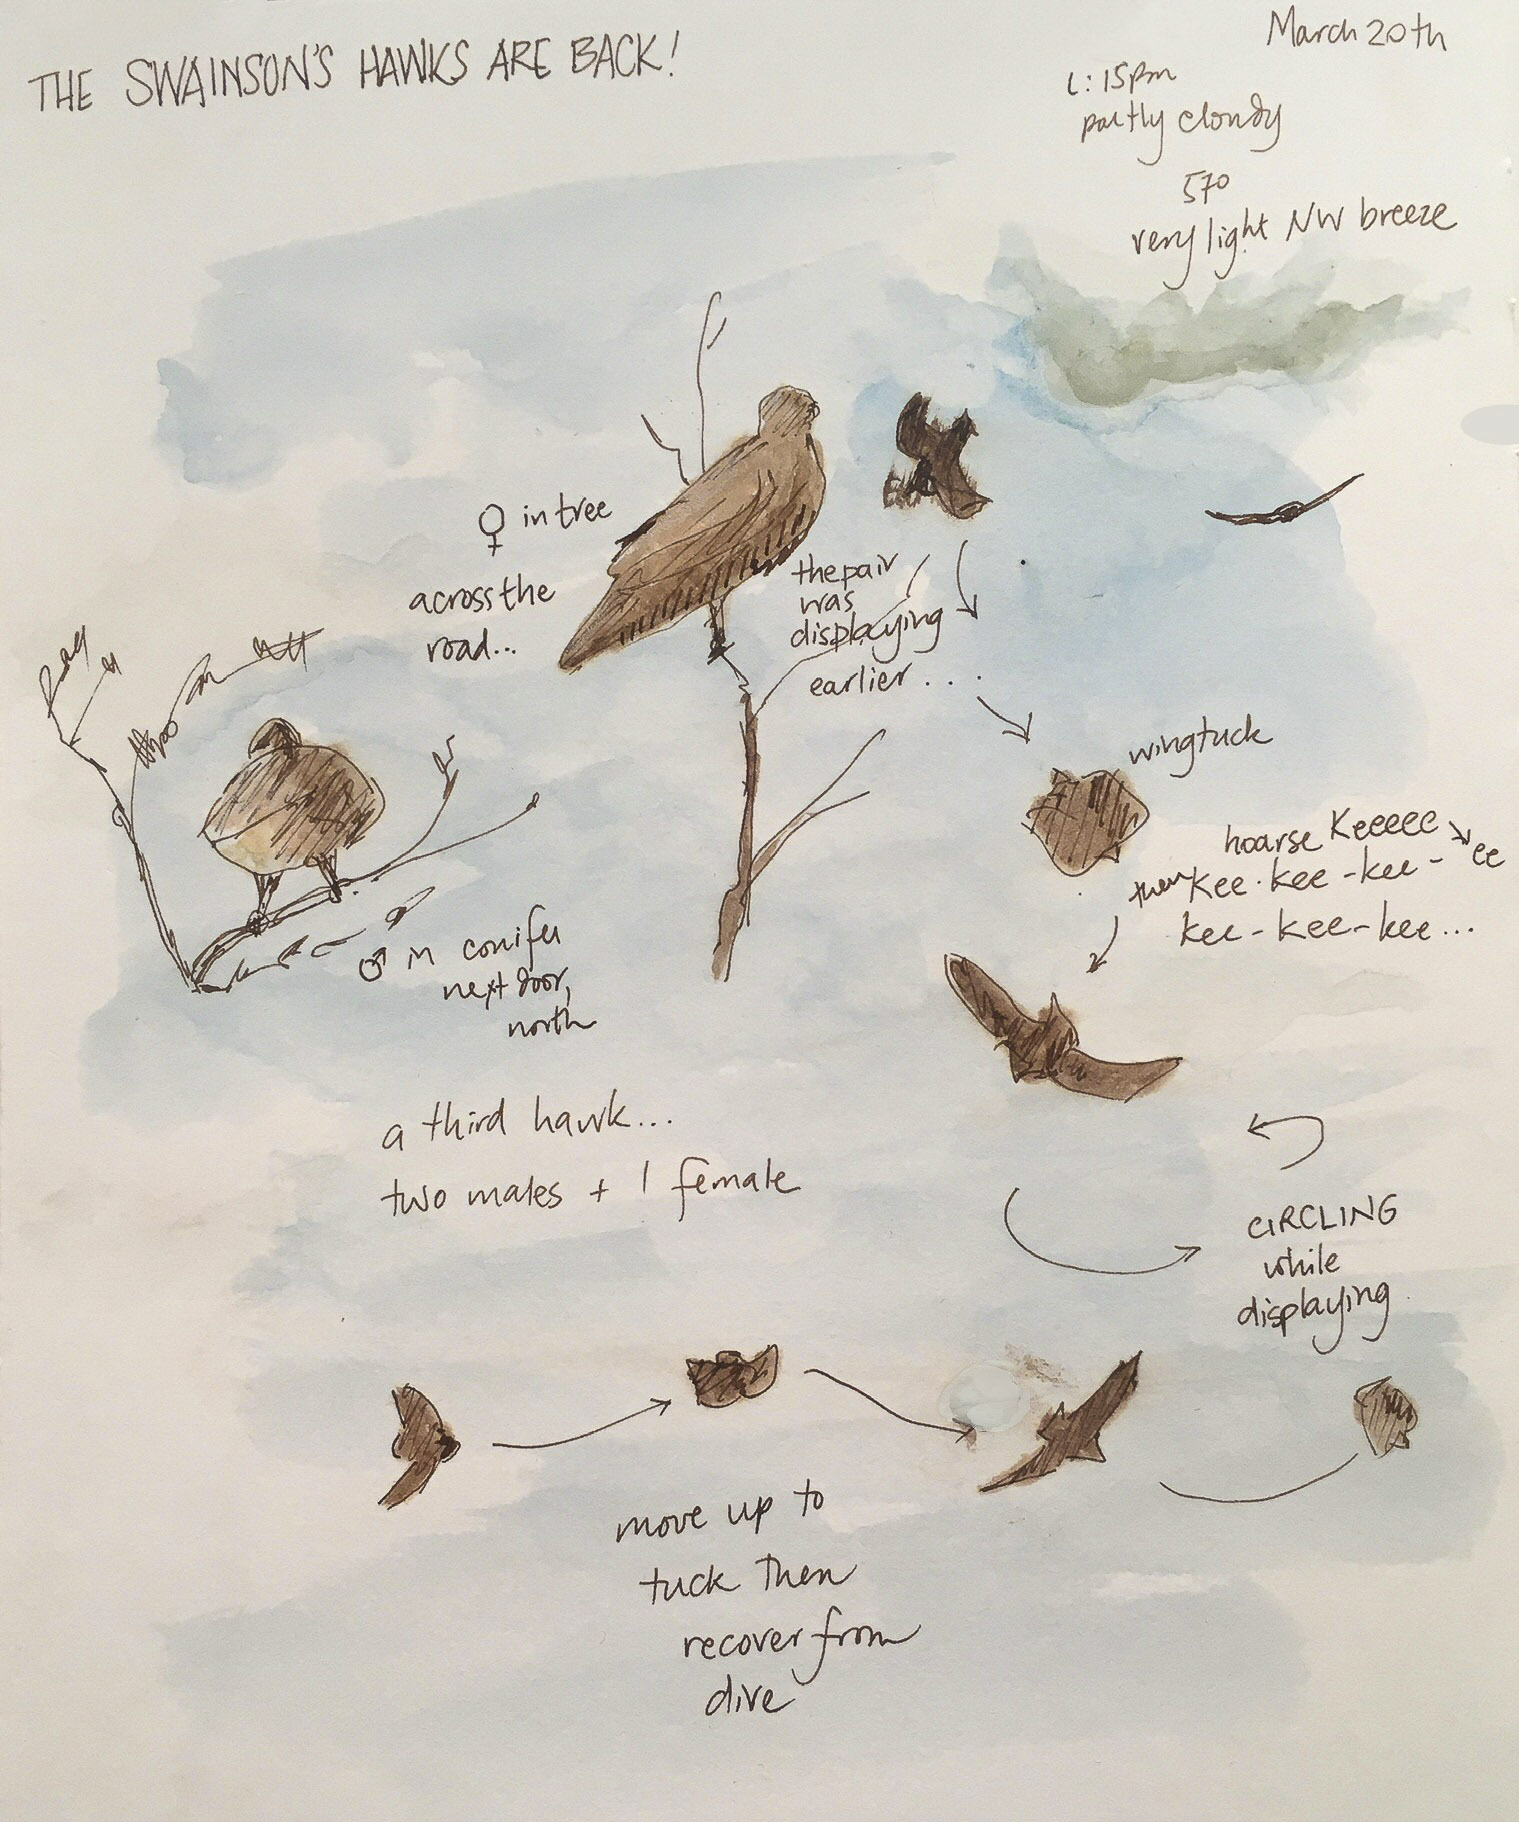 THE SWAINSON'S HAWKS ARE BACK!
March 20th
:15pm
partly cloudy
57°
very light NW breeze
♀ in tree
across the
road...
the pair
was
displaying
earlier....
wingtuck
hoarse Keeeee ee
then Kee-kee-kee-
kee-kee-kee...
♂ in conifer
next door,
north
a third hawk...
two males + 1 female
CIRCLING
while
displaying
move up to
tuck then
recover from
dive